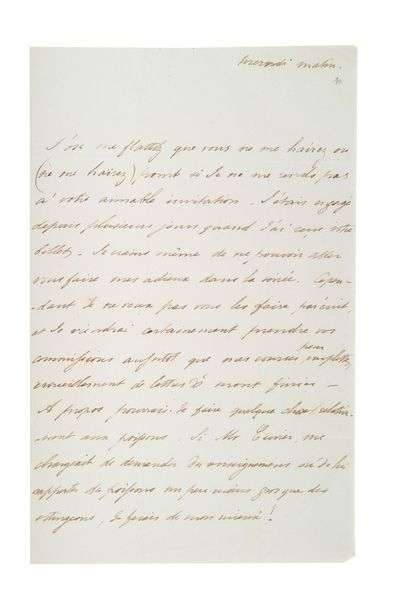 mercredi matin.
J'ose me flatter que vous ne me hairez ou
(ne me haïrez) point si Je ne me rends pas
à votre aimable invitation. J'étais engagé
depuis plusieurs jours quand J'ai reçu votre
billet. Je crains même de ne pouvoir aller
vous faire mes adieux dans la soirée. Cepen-
dant Je ne veux pas vous les faire par écrit
et Je viendrai certainement prendre vos
commissions aussitot que mes courses pour
renouvellement de lettres &c. seront finies —
A propos pourrais-Je faire quelque chose relative-
ment aux poissons. Si Mr Cuvier me
chargeait de demander des renseignemens ou de lui
rapporter des poissons un peu moins gros que des
esturgeons, Je ferais de mon mieux!